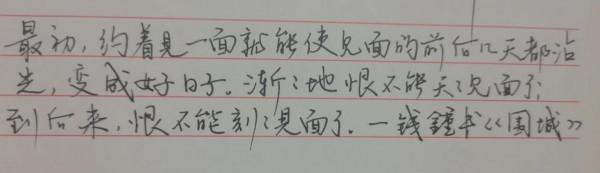 最初，约着见一面就能使见面的前后几天都沾
光，变成好日子。渐々地恨不能天々见面了；
到后来，恨不能刻々见面了。—钱鍾书《围城》